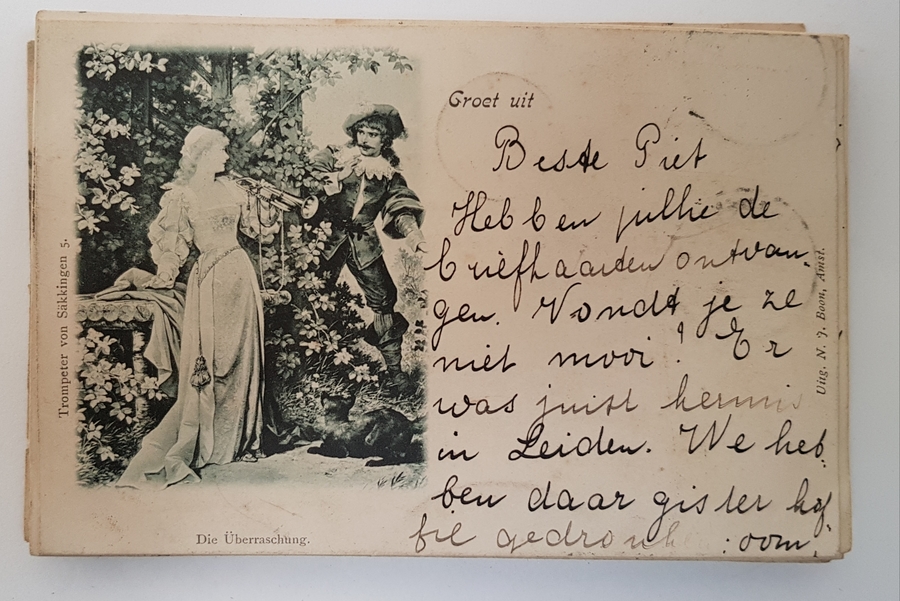 Groet uit
Beste Piet
Hebben jullie de
briefkaarten ontvan-
gen. Vondt je ze
niet mooi! Er
was juist kermis
in Leiden. We heb
ben daar gister kof
fie gedronk : oom
Trompeter von Säkkingen 5.
Die Überraschung.
Uitg. N. J. Boon, Amst.